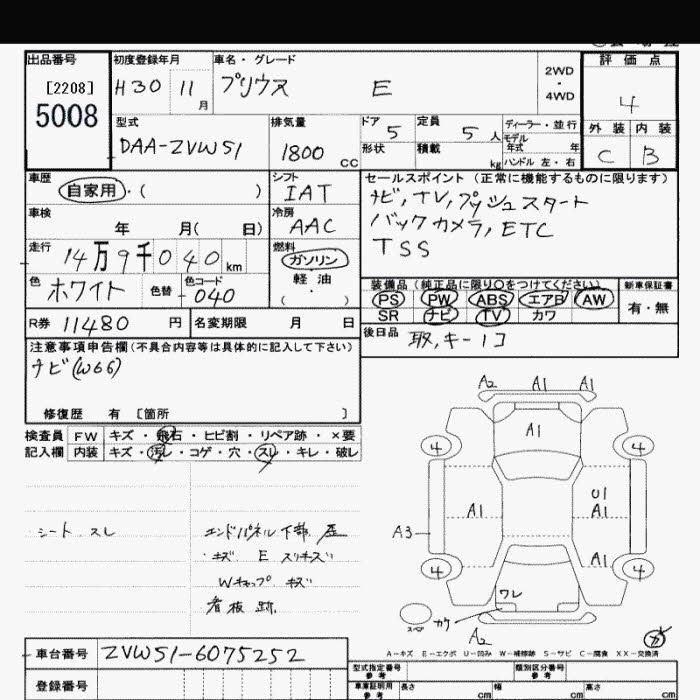 出品番号
[2208]
5008
初度登録年月
H30 11月
車名・グレード
プリウス E
2WD
・
4WD
評価点
4
外装 内装
C B
型式
DAA-ZVW51
排気量
1800 CC
ドア 5
定員 5 人
形状
積載 kg
ディーラー・並行
モデル
年式 年
ハンドル 左・右
車歴
自家用・( )
シフト
IAT
セールスポイント(正常に機能するものに限ります)
ナビ,TV,プッシュスタート
バックカメラ,ETC
TSS
車検
年 月( 日)
冷房
AAC
走行
14万9千040km
燃料
ガソリン
軽油
( )
色
ホワイト
色替
色コード
040
装備品(純正品に限り○をつけてください)
新車保証書
PS PW ABS エアB AW
SR ナビ TV カワ
有・無
R券 11480 円
名変期限 月 日
後日品
取,キー1コ
注意事項申告欄(不具合内容等は具体的に記入して下さい)
ナビ(W66)
修復歴 有 [箇所 ]
検査員
記入欄
FW キズ・飛石・ヒビ割・リペア跡・×要
内装 キズ・汚レ・コゲ・穴・スレ・キレ・破レ
シート スレ
エンドパネル下部 歪
キズ E スリキズ
Wキャップ キズ
看板 跡
A2 A1 A1
A1
4 4
A1
U1
A1
A3
A1
4 4
ワレ
スペ
カケ
A2
A-キズ E-エクボ U-凹み W-補修跡 S-サビ C-腐食 XX-交換済
車台番号
ZVW51-6075252
登録番号
型式指定番号
参考
類別区分番号
参考
車庫証明用
参考
長さ cm
幅 cm
高さ cm